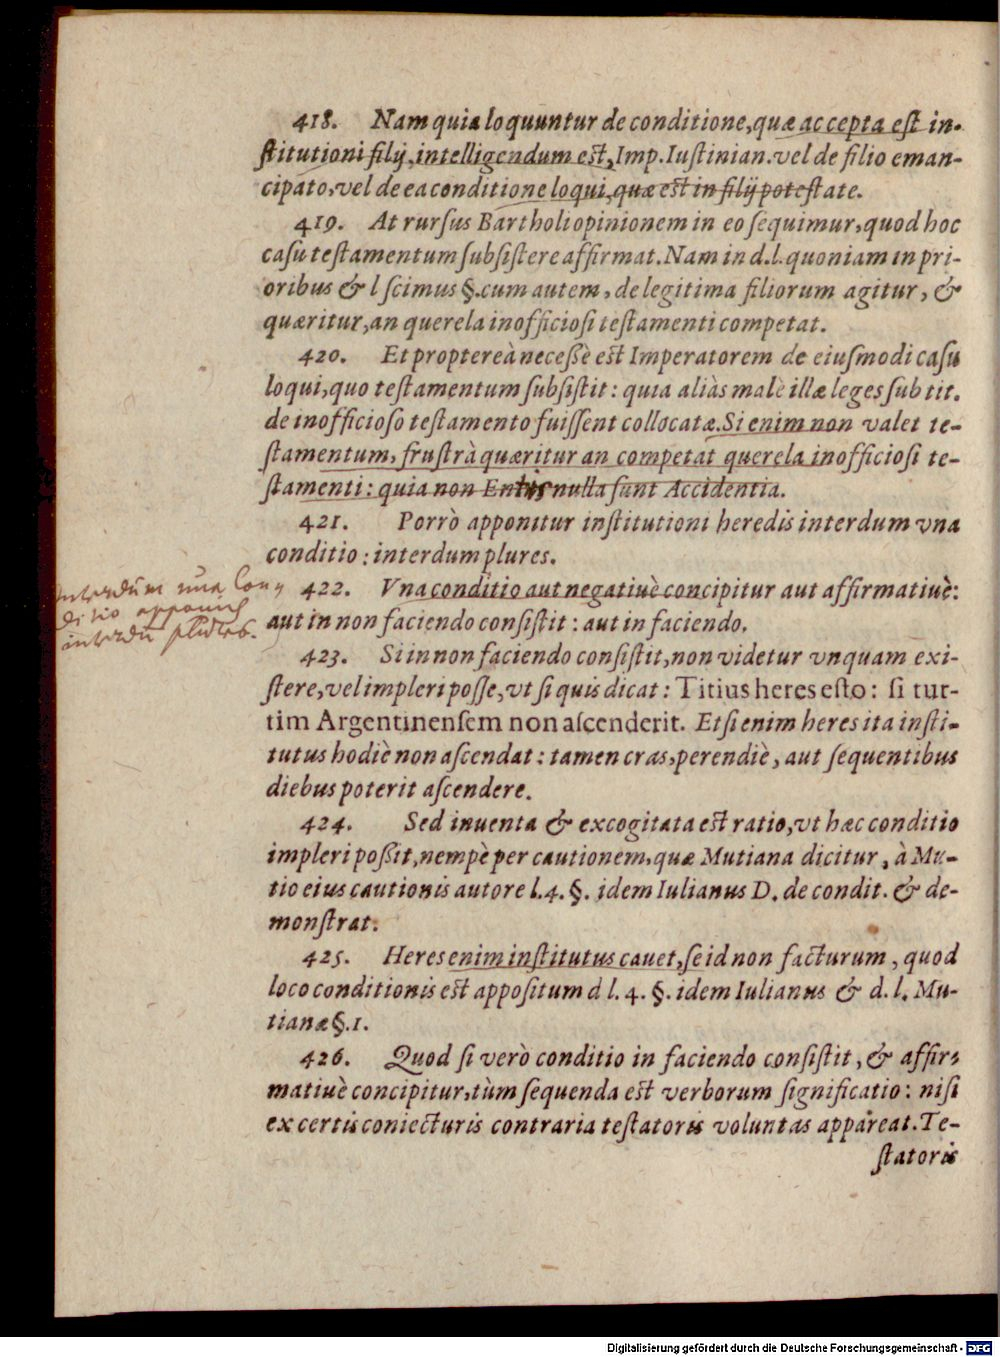 418. Nam quia loquuntur de conditione, quæ accepta est in-
stitutioni filij, intelligendum est, Imp. Iustinian. vel de filio eman-
cipato, vel de ea conditione loqui, quæ est in filij potestate.
419. At rursus Bartholi opinionem in eo sequimur, quod hoc
casu testamentum subsistere affirmat. Nam in d.l. quoniam in pri-
oribus & l scimus §. cum autem, de legitima filiorum agitur, &
quæritur, an querela inofficiosi testamenti competat.
420. Et proptereà necessè est Imperatorem de eiusmodi casu
loqui, quo testamentum subsistit: quia aliàs malè illæ leges sub tit.
de inofficioso testamento fuissent collocatæ. Si enim non valet te-
stamentum, frustrà quæritur an competat querela inofficiosi te-
stamenti: quia non Entis nulla sunt Accidentia.
421. Porrò apponitur institutioni heredis interdum vna
conditio: interdum plures.
Interdum una con-
ditio apponit
interdũ plures.
422. Vna conditio aut negatiuè concipitur aut affirmatiuè:
aut in non faciendo consistit: aut in faciendo.
423. Si in non faciendo consistit, non videtur vnquam exi-
stere, vel impleri posse, vt si quis dicat: Titius heres esto: si tur-
tim Argentinensem non ascenderit. Etsi enim heres ita insti-
tutus hodiè non ascendat: tamen cras, perendiè, aut sequentibus
diebus poterit ascendere.
424. Sed inuenta & excogitata est ratio, vt hæc conditio
impleri possit, nempè per cautionem, quæ Mutiana dicitur, à Mu-
tio eius cautionis autore l.4. §. idem Iulianus D. de condit. & de-
monstrat.
425. Heres enim institutus cauet, se id non facturum, quod
loco conditionis est appositum d l. 4. §. idem Iulianus & d. l. Mu-
tianæ §.1.
426. Quod si verò conditio in faciendo consistit, & affir-
matiuè concipitur, tùm sequenda est verborum significatio: nisi
ex certis coniecturis contraria testatoris voluntas appareat. Te-
statoris
Digitalisierung gefördert durch die Deutsche Forschungsgemeinschaft - DFG